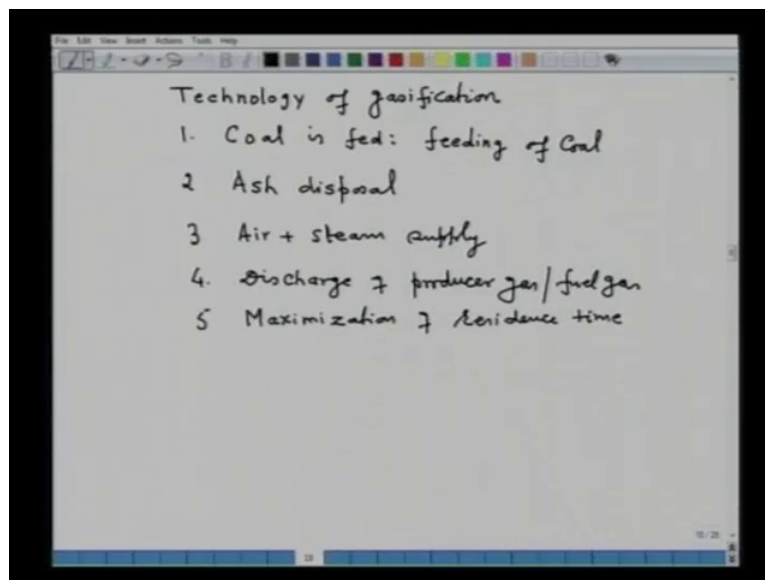 File Edit View Insert Actions Tools Help
Technology of gasification
1. Coal is fed: feeding of Coal
2 Ash disposal
3 Air + steam supply
4. Discharge of producer gas/fuel gas
5 Maximization of residence time